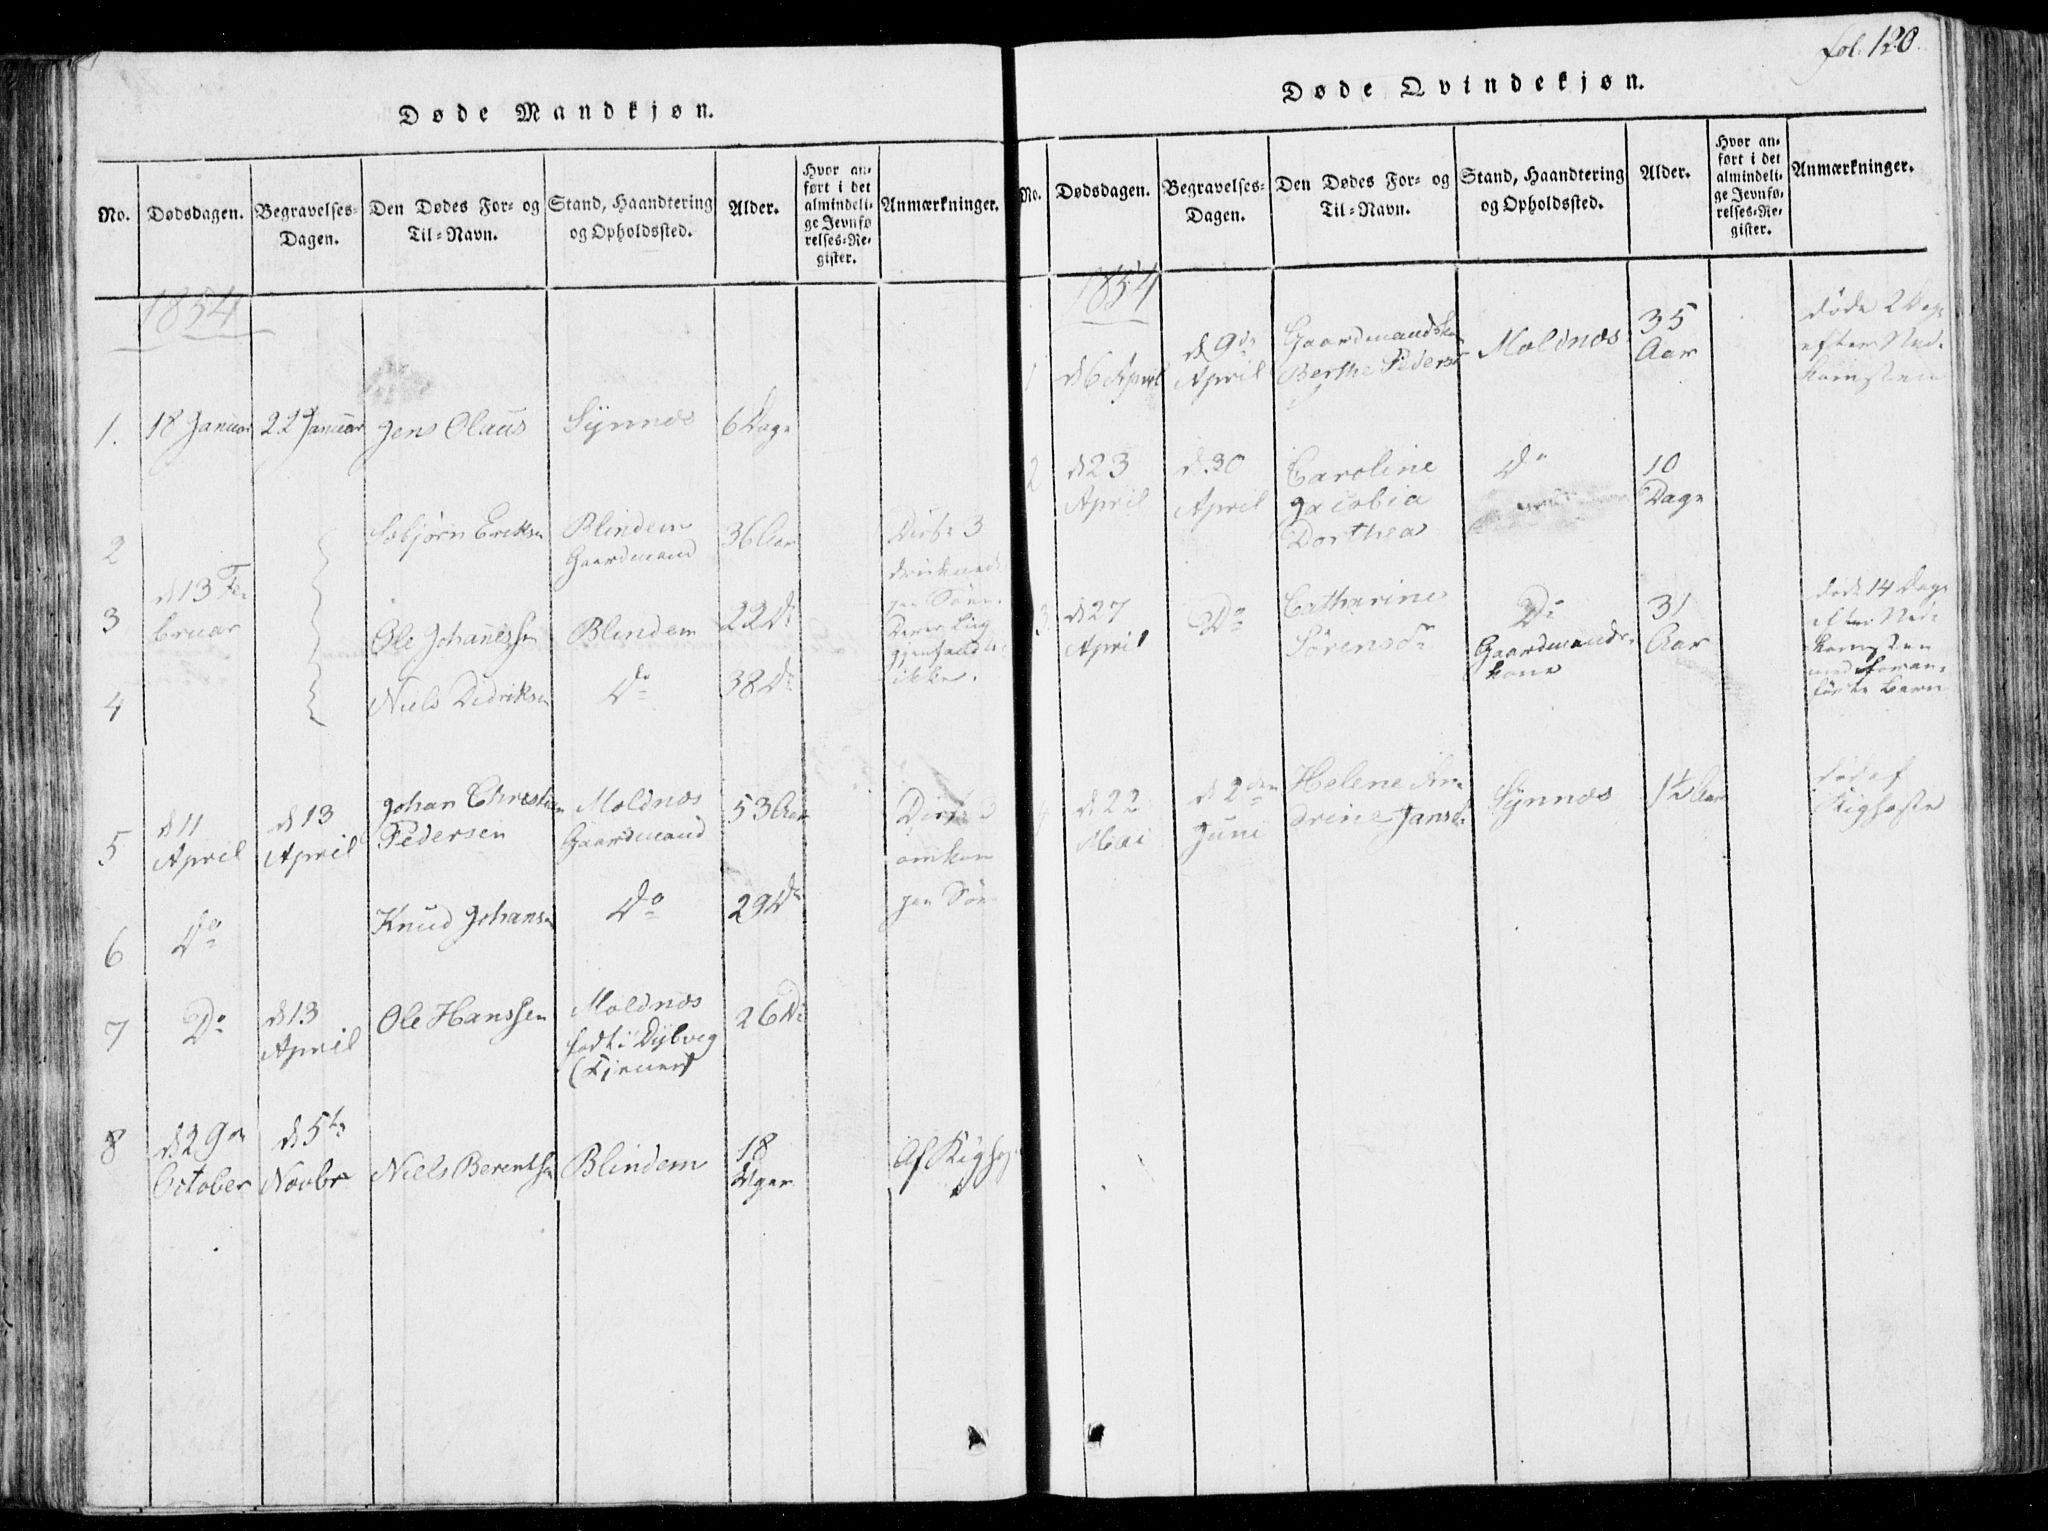 fol. 120.
Døde Mandkjøn.
No.
Dødsdagen.
Begravelses-
Dagen.
Den Dødes For- og
Til-Navn.
Stand, Haandtering
og Opholdssted.
Alder.
Hvor an-
ført i det
almindeli-
ge Jevnfø-
relses-Re-
gister.
Anmærkninger.
1854
1. 18 Januar 22 Januar Jens Olaus Synnæs 6 Dage
2
Eriksen
Blindem
Gaardmand
36 Aar
Disse 3
d 13 Fe-
bruar
3
Ole Johanessen
Blindem
22 Do
4
Niels Didriksen
Do
38 Do
ikke.
5
d 11
April
d 13
April
Johan Christian
Pedersen
Moldnæs
Gaardmand
53 Aar
Disse 3
omkom
6
Do
Knud Johansen
Do
29 Do
7
Do
d 13
April
Ole Hanssen
Moldnæs
født i Dybvig
(Tjener)
26 Do
8
d 29de
October
d 5te
Novbr
Niels Berentsen
Blindem
18
Uger
Af Kighos
Døde Qvindekjøn.
No.
Dødsdagen.
Begravelses-
Dagen.
Den Dødes For- og
Til-Navn.
Stand, Haandtering
og Opholdssted.
Alder.
Hvor an-
ført i det
almindeli-
ge Jevnfø-
relses-Re-
gister.
Anmærkninger.
1854
1
d 6 April
d 9de
April
Gaardmandskone
Berthe Pedersdr
Moldnæs
35
Aar
døde 2 Dage
efter Ned-
komsten
2
d 23
April
d. 30
April
Caroline
Jacobia
Dorthea
Do
10
Dage
3
d 27
April
Do
Catharine
Sørensdr
Do
Gaardmands-
kone
31
Aar
døde 14 Dage
efter Ned-
komsten
med foran-
førte Barn
4
d 22
Mai
d 2den
Juni
Helene An-
drine Jansd.
Synnæs
1½ Aar
død af
Kighoste